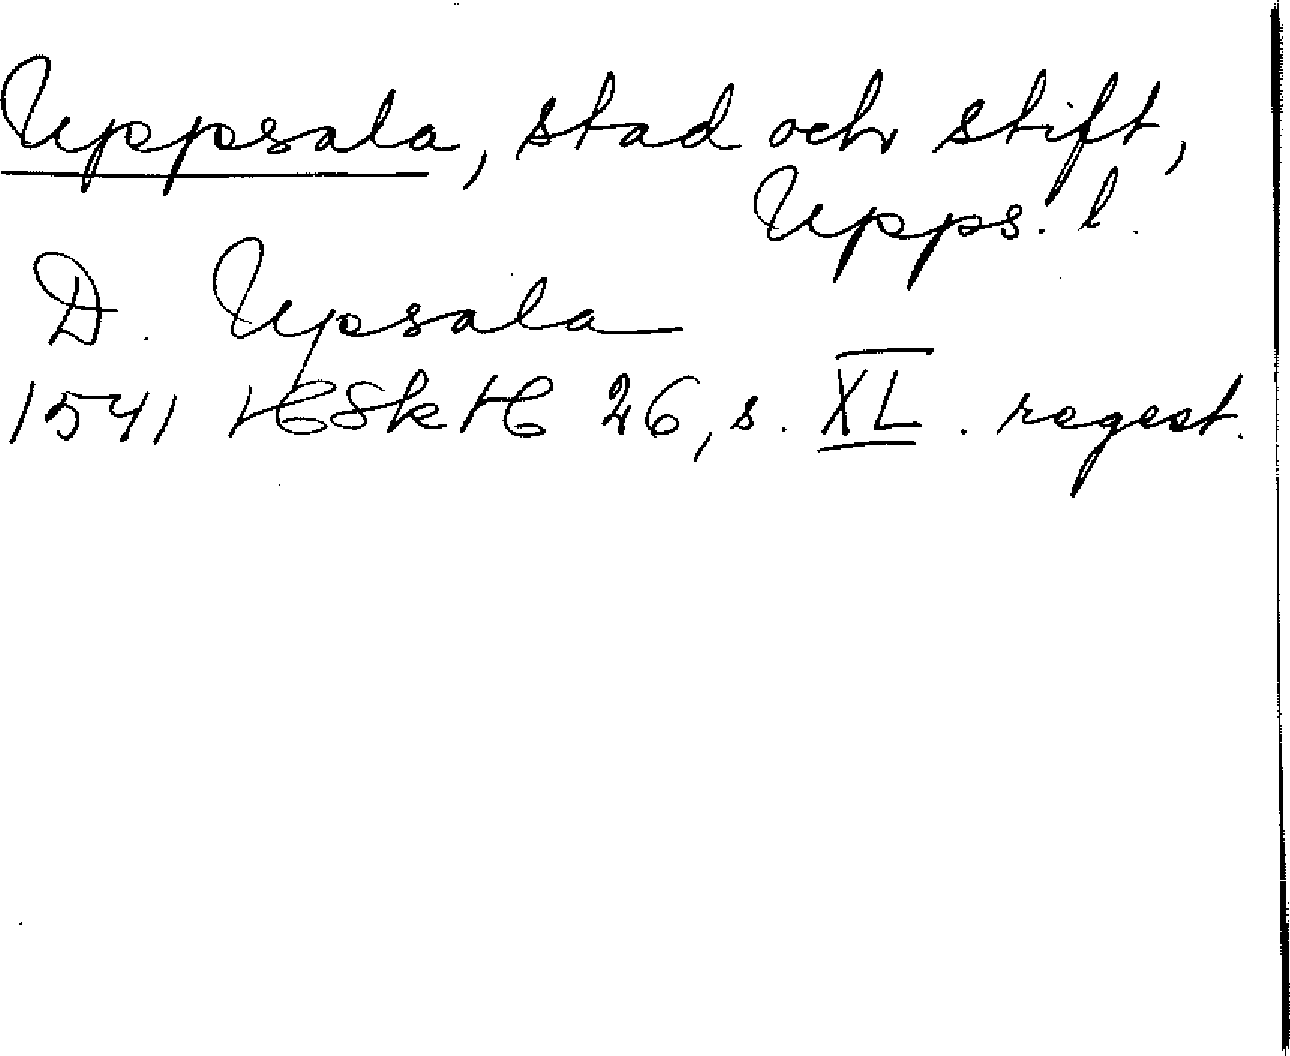 Uppsala, stad och stift,
Upps. l.
D. Upsala
1541 HSkH 26, s. XL. regest.